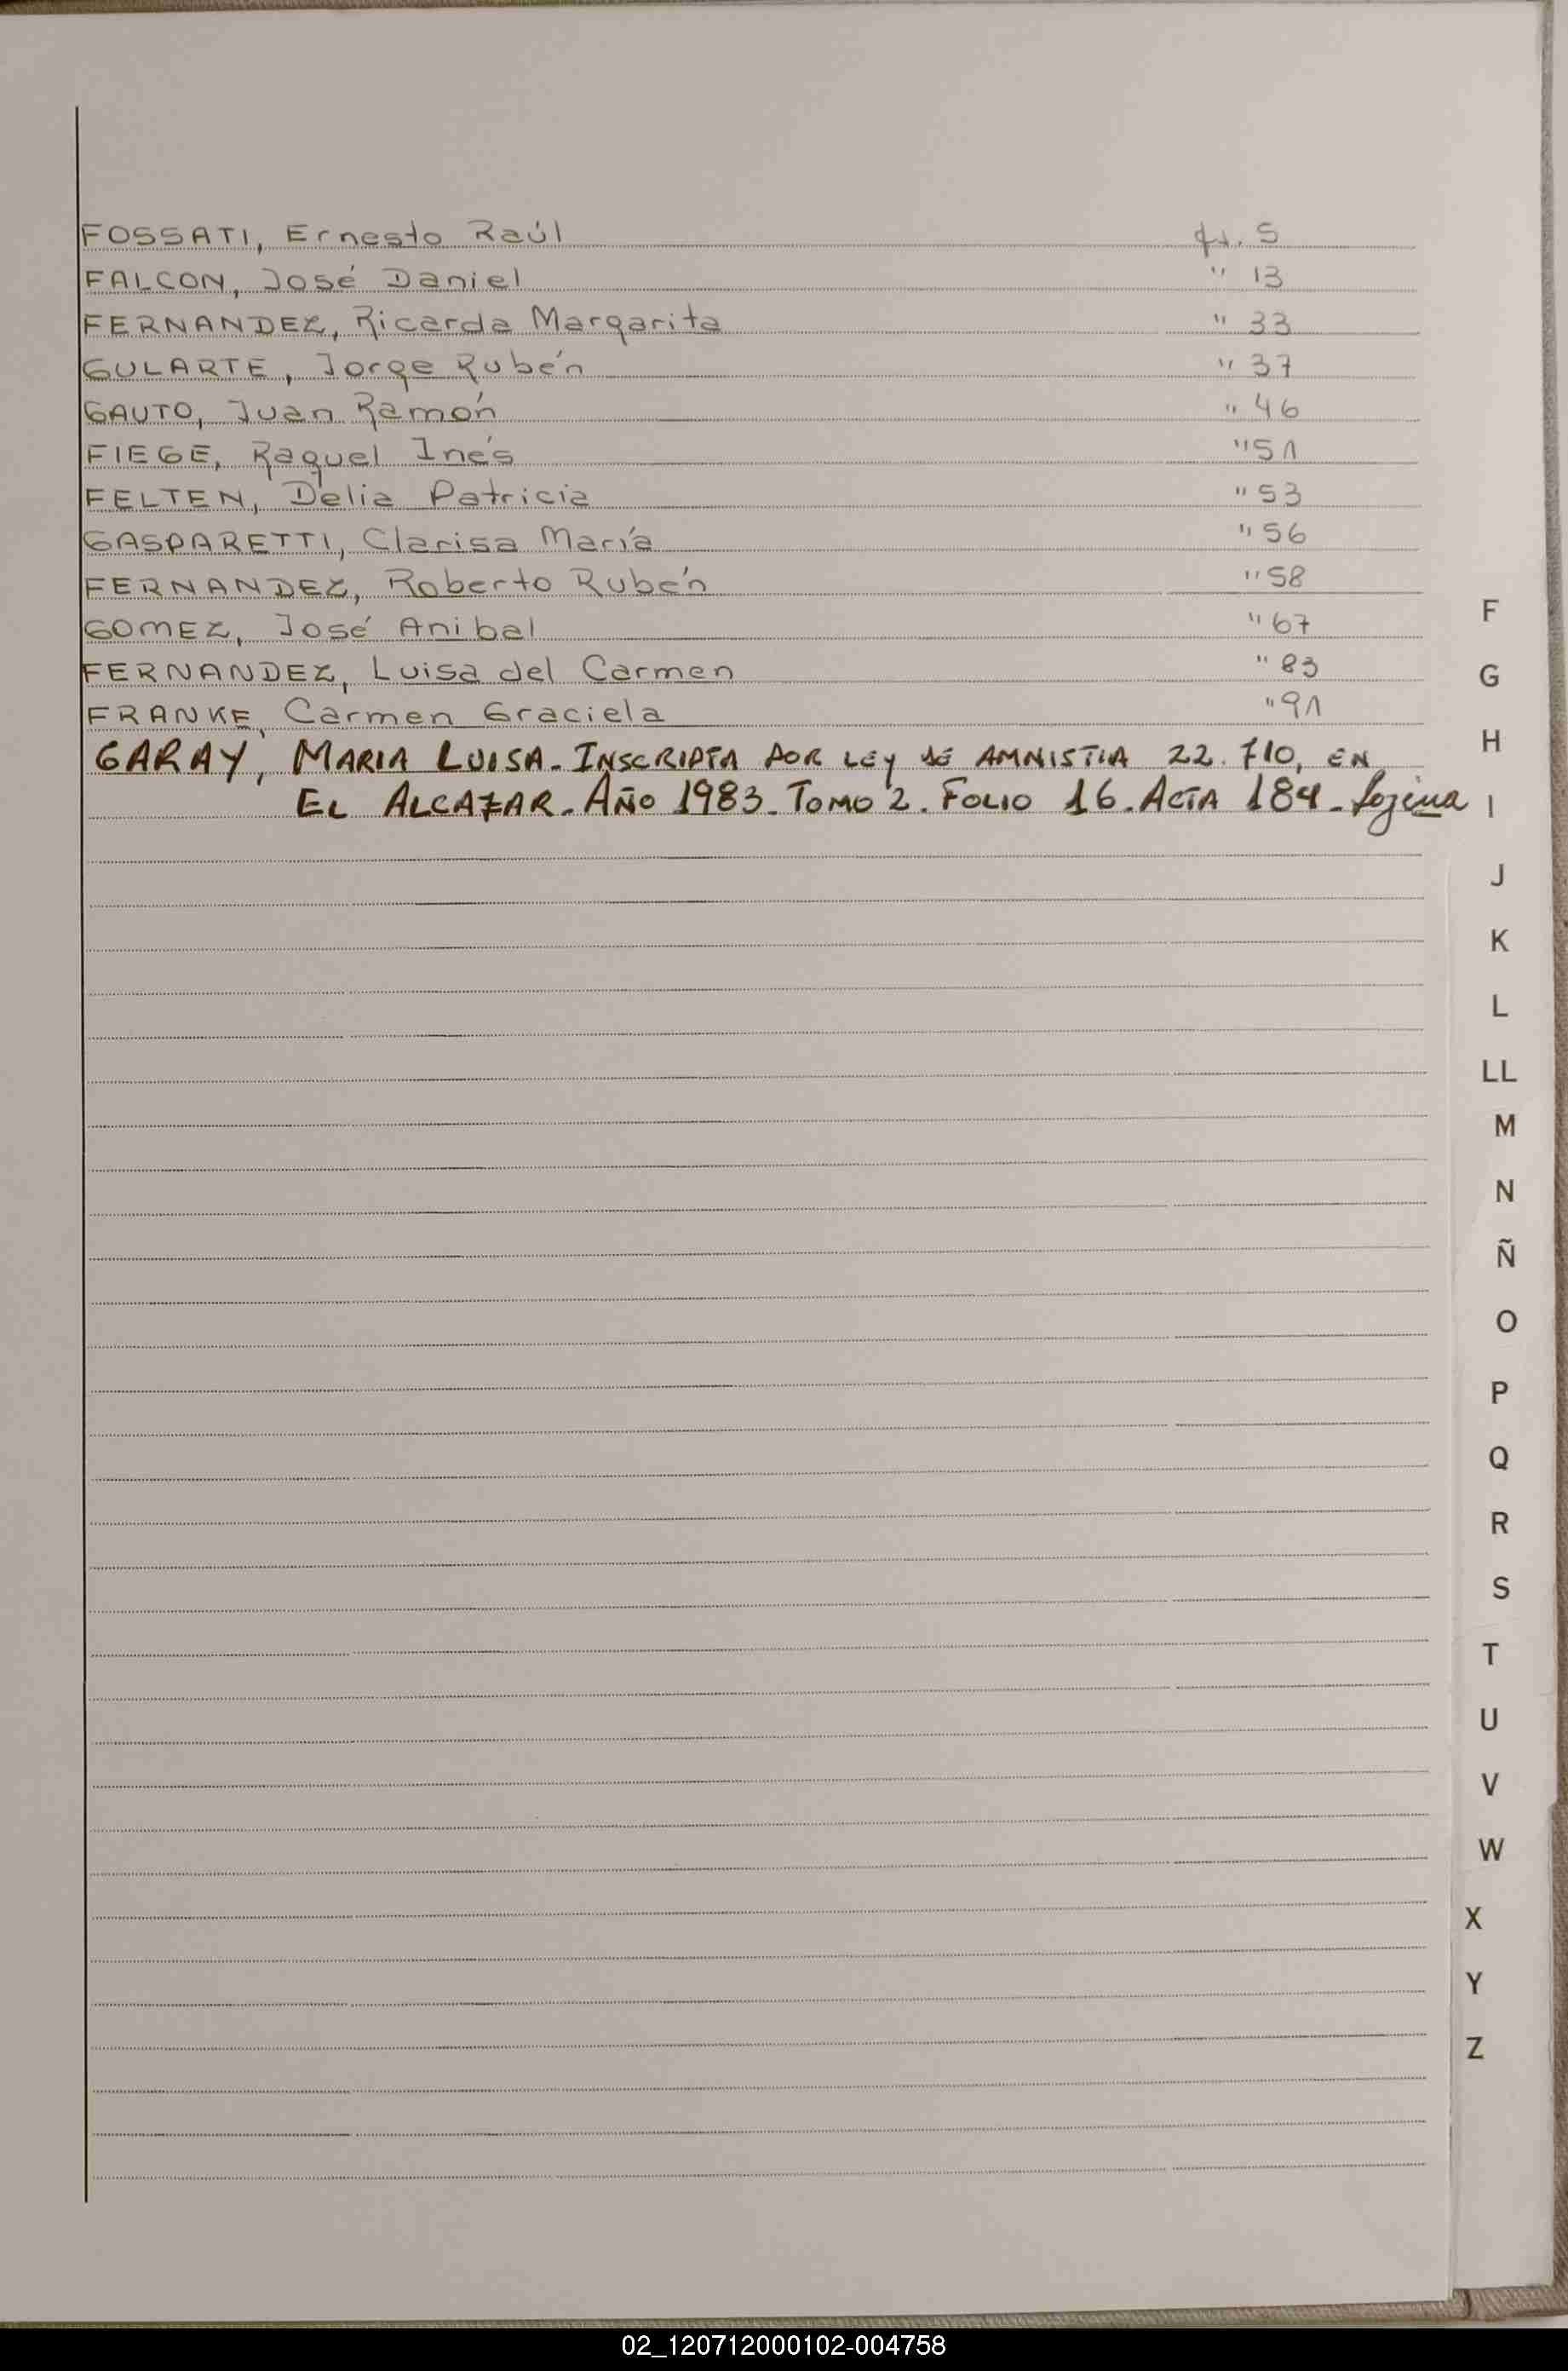 FOSSATI, Ernesto Raúl fs. 5
FALCON, José Daniel " 13
FERNANDEZ, Ricarda Margarita " 33
GULARTE, Jorge Rubén " 37
GAUTO, Juan Ramón " 46
FIEGE, Raquel Inés " 51
FELTEN, Delia Patricia " 53
GASPARETTI, Clarisa María " 56
FERNANDEZ, Roberto Rubén " 58
GOMEZ, José Anibal " 67
FERNANDEZ, Luisa del Carmen " 83
FRANKE, Carmen Graciela " 91
GARAY, MARIA LUISA. INSCRIPTA POR LEY DE AMNISTIA 22.710, EN
EL ALCAZAR. AÑO 1983. TOMO 2. FOLIO 16. ACTA 184.
F
G
H
I
J
K
L
LL
M
N
Ñ
O
P
Q
R
S
T
U
V
W
X
Y
Z
02_120712000102-004758